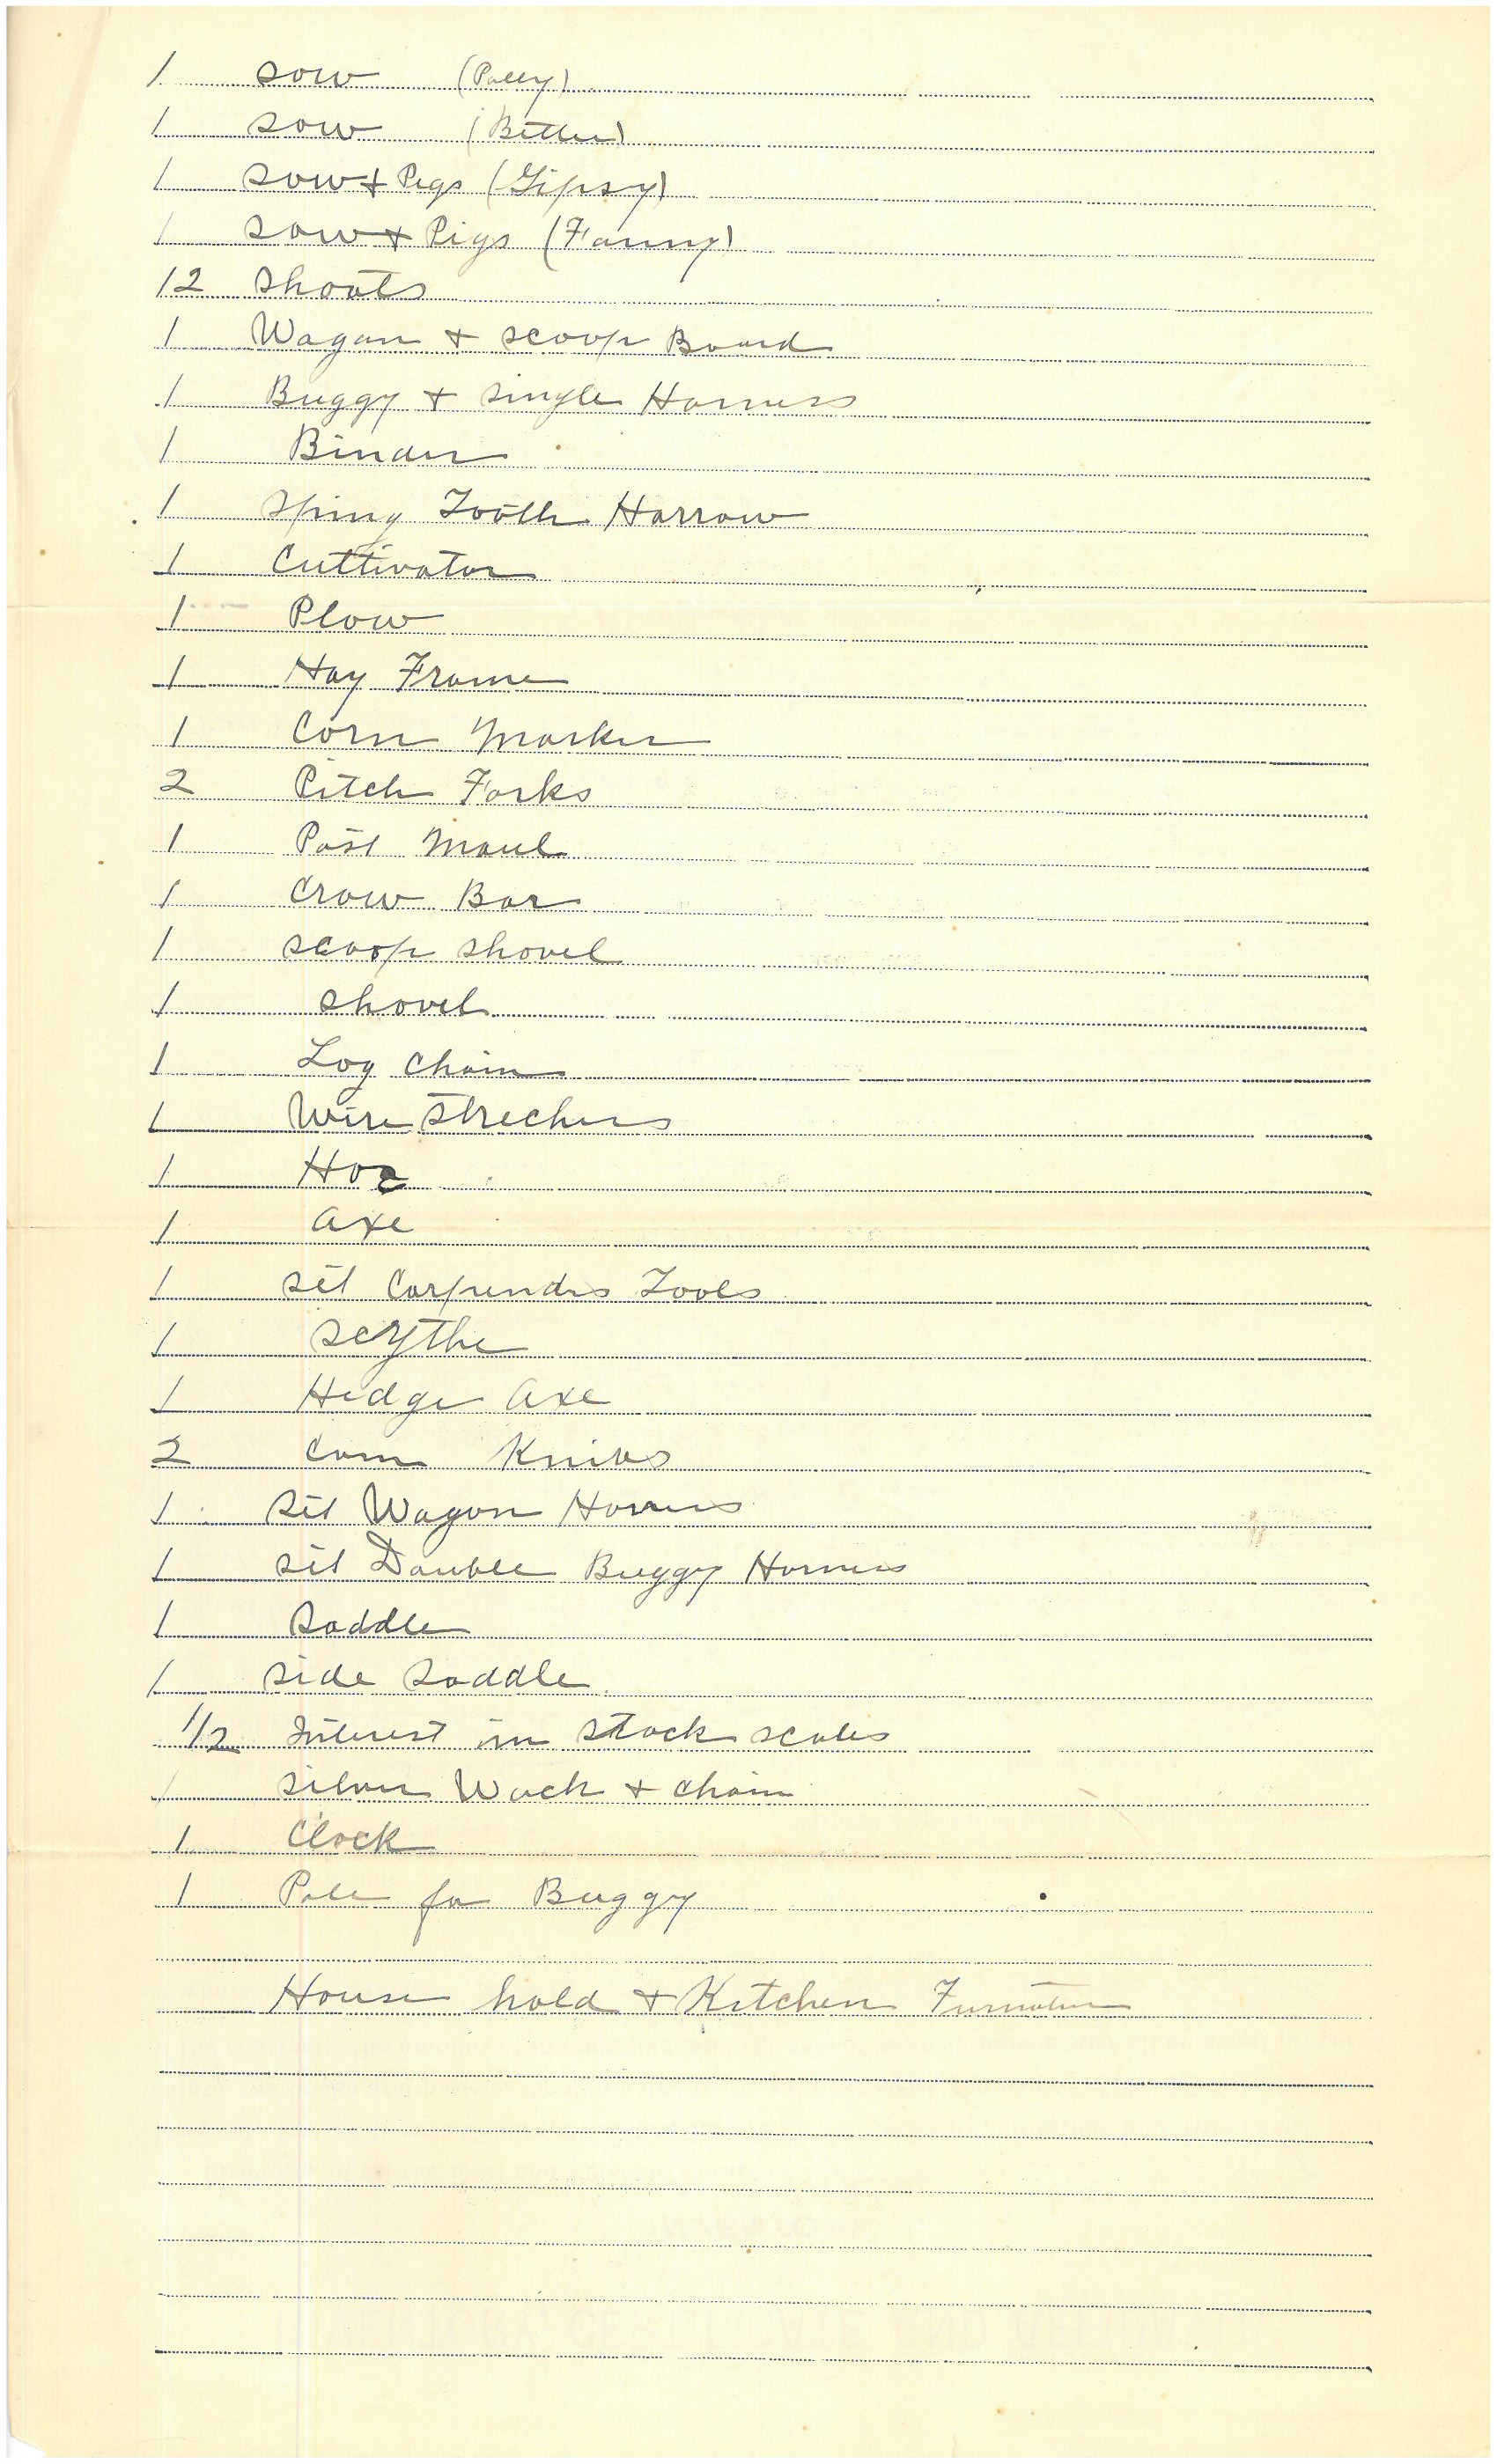 1 sow (Polly)
1 sow (Bettie)
1 sow & Pigs (Gipsy)
1 sow & Pigs (Fanny)
12 shoats
1 Wagon & scoop Board
1 Buggy & single Harness
1 Binder
1 Spring Tooth Harrow
1 Cultivator
1 Plow
1 Hay Frame
1 Corn Marker
2 Pitch Forks
1 Post Maul
1 Crow Bar
1 scoop shovel
1 shovel
1 Log chain
1 Wire strechers
1 Hoe
1 axe
1 set Carpenders Tools
1 scythe
1 Hedge axe
2 Corn Knives
1 set Wagon Harness
1 set Double Buggy Harness
1 saddle
1 side saddle
1/2 Interest in stock scales
1 silver Wach & chain
1 Clock
1 Pole for Buggy
House hold & Kitchen Furniture